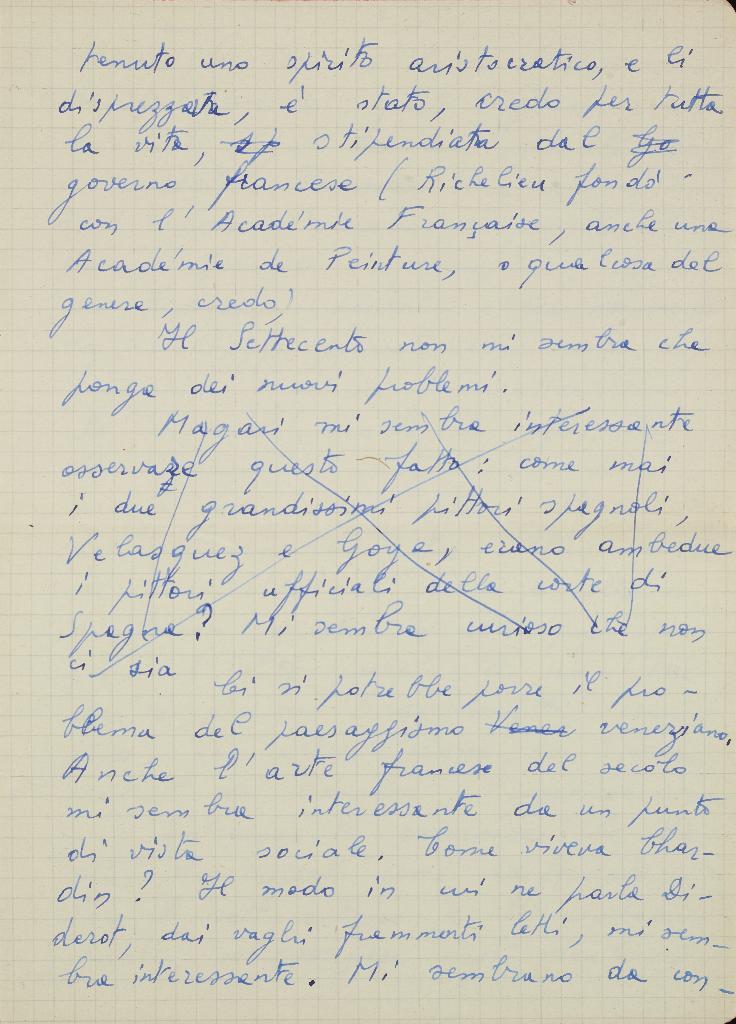 tenuto uno spirito aristocratico, e li
disprezzata, é stato, credo per tutta
la vita, sp stipendiata dal Go
governo francese (Richelieu fondó
con l'Académie Française, anche una
Académie de Peinture, o qualcosa del
genere, credo)
Il Settecento non mi sembra che
ponga dei nuovi problemi.
Magari mi sembra interessante
osservare questo fatto: come mai
i due grandissimi pittori spagnoli,
Velasquez e Goya, erano ambedue
i pittori ufficiali della corte di
Spagna? Mi sembra curioso che non
ci sia
Ci si potrebbe porre il pro-
blema del paesaggismo Vene veneziano.
Anche l'arte francese del secolo
mi sembra interessante da un punto
di vista sociale. Come viveva Char-
din? Il modo in cui ne parla Di-
derot, dai vaghi frammenti letti, mi sem-
bra interessante. Mi sembrano da con-